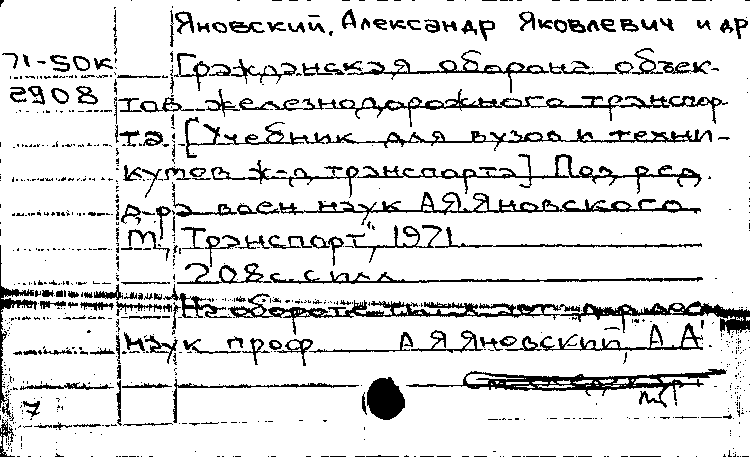 Яновский, Александр Яковлевич и др
71-50к Гражданская оборона объек-
2908 тов железнодорожного транспор
та. [Учебник для вузов и техни-
кумов ж-д транспорта] Под ред.
д-ра воен наук А.Я.Яновского.
М., "Транспорт", 1971.
208с. с илл.
На обороте тит. л. авт. д-р воен
наук проф. А Я Яновский, А.А
7